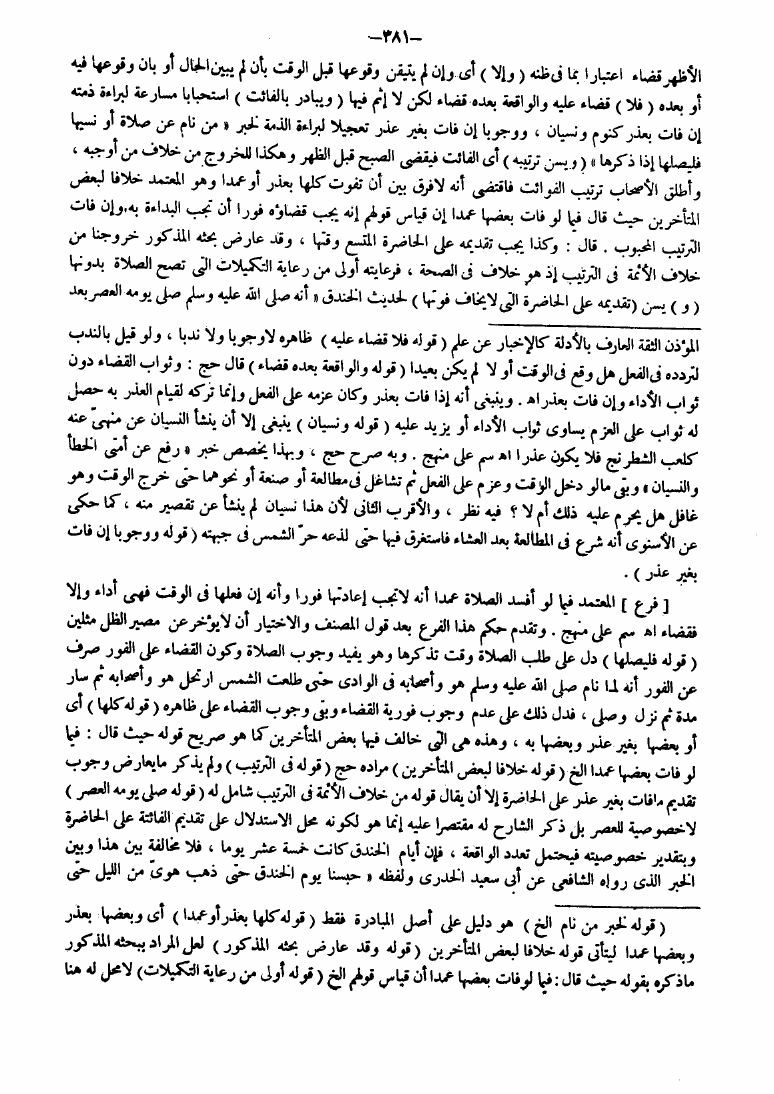 —٣٨١—
الأظهر قضاء اعتبارا بما فى ظنه ( وإلا ) أى وإن لم يتيقن وقوعها قبل الوقت بأن لم يبين الحال أو بان وقوعها فيه
أو بعده ( فلا ) قضاء عليه والواقعة بعده قضاء لكن لا إثم فيها ( ويبادر بالفائت ) استحبابا مسارعة لبراءة ذمته
إن فات بعذر كنوم ونسيان ، ووجوبا إن فات بغير عذر تعجيلا لبراءة الذمة لخبر « من نام عن صلاة أو نسيها
فليصلها إذا ذكرها » ( ويسن ترتيبه ) أى الفائت فيقضى الصبح قبل الظهر وهكذا للخروج من خلاف من أوجبه ،
وأطلق الأصحاب ترتيب الفوائت فاقتضى أنه لافرق بين أن تفوت كلها بعذر أوعمدا وهو المعتمد خلافا لبعض
المتأخرين حيث قال فيما لو فات بعضها عمدا إن قياس قولهم إنه يجب قضاؤه فورا أن تجب البداءة به.وإن فات
الترتيب المحبوب . قال : وكذا يجب تقديمه على الحاضرة المتسع وقتها ، وقد عارض بحثه المذكور خروجنا من
خلاف الأئمة فى الترتيب إذ هو خلاف فى الصحة ، فرعايته أولى من رعاية التكميلات التى تصح الصلاة بدونها
( و ) يسن (تقديمه على الحاضرة التى لايخاف فوتها ) لحديث الخندق « أنه صلى الله عليه وسلم صلى يومه العصر بعد
المؤذن الثقة العارف بالأدلة كالإخبار عن علم ( قوله فلا قضاء عليه ) ظاهره لاوجوبا ولا ندبا ، ولو قيل بالندب
لتردده فى الفعل هل وقع فى الوقت أو لا لم يكن بعيدا ( قوله والواقعة بعده قضاء ) قال حج : وثواب القضاء دون
ثواب الأداء وإن فات بعذر اه . وينبغى أنه إذا فات بعذر وكان عزمه على الفعل وإنما تركه لقيام العذر به حصل
له ثواب على العزم يساوى ثواب الأداء أو يزيد عليه ( قوله ونسيان ) ينبغى إلا أن ينشأ النسيان عن منهىّ عنه
كلعب الشطرنج فلا يكون عذرا اه سم على منهج . وبه صرح حج ، وبهذا يخصص خبر « رفع عن أمتى الخطأ
والنسيان » وبقى مالو دخل الوقت وعزم على الفعل ثم تشاغل فى مطالعة أو صنعة أو نحوهما حتى خرج الوقت وهو
غافل هل يحرم عليه ذلك أم لا ؟ فيه نظر ، والأقرب الثانى لأن هذا نسيان لم ينشأ عن تقصير منه ، كما حكى
عن الأسنوى أنه شرع فى المطالعة بعد العشاء فاستغرق فيها حتى لذعه حرّ الشمس فى جبهته ( قوله ووجوبا إن فات
بغير عذر ) .
[ فرع ] المعتمد فيما لو أفسد الصلاة عمدا أنه لاتجب إعادتها فورا وأنه إن فعلها فى الوقت فهى أداء وإلا
فقضاء اه سم على منهج . وتقدم حكم هذا الفرع بعد قول المصنف والاختيار أن لايؤخر عن مصير الظل مثلين
( قوله فليصلها ) دل على طلب الصلاة وقت تذكرها وهو يفيد وجوب الصلاة وكون القضاء على الفور صرف
عن الفور أنه لما نام صلى الله عليه وسلم هو وأصحابه فى الوادى حتى طلعت الشمس ارتحل هو وأصحابه ثم سار
مدة ثم نزل وصلى ، فدل ذلك على عدم وجوب فورية القضاء وبقى وجوب القضاء على ظاهره ( قوله كلها ) أى
أو بعضها بغير عذر وبعضها به ، وهذه هى التى خالف فيها بعض المتأخرين كما هو صريح قوله حيث قال : فيما
لو فات بعضها عمدا الخ ( قوله خلافا لبعض المتأخرين ) مراده حج ( قوله فى الترتيب ) ولم يذكر مايعارض وجوب
تقديم مافات بغير عذر على الحاضرة إلا أن يقال قوله من خلاف الأئمة فى الترتيب شامل له ( قوله صلى يومه العصر )
لاخصوصية للعصر بل ذكر الشارح له مقتصرا عليه إنما هو لكونه محل الاستدلال على تقديم الفائتة على الحاضرة
وبتقدير خصوصيته فيحتمل تعدد الواقعة ، فإن أيام الخندق كانت خمسة عشر يوما ، فلا مخالفة بين هذا وبين
الخبر الذى رواه الشافعى عن أبى سعيد الخدرى ولفظه « حبسنا يوم الخندق حتى ذهب هوىّ من الليل حتى
( قوله لخبر من نام الخ ) هو دليل على أصل المبادرة فقط ( قوله كلها بعذر أو عمدا ) أى وبعضها بعذر
وبعضها عمدا ليتأتى قوله خلافا لبعض المتأخرين ( قوله وقد عارض بحثه المذكور ) لعل المراد ببحثه المذكور
ماذكره بقوله حيث قال : فيما لو فات بعضها عمدا أن قياس قولهم الخ ( قوله أولى من رعاية التكميلات) لامحل له هنا